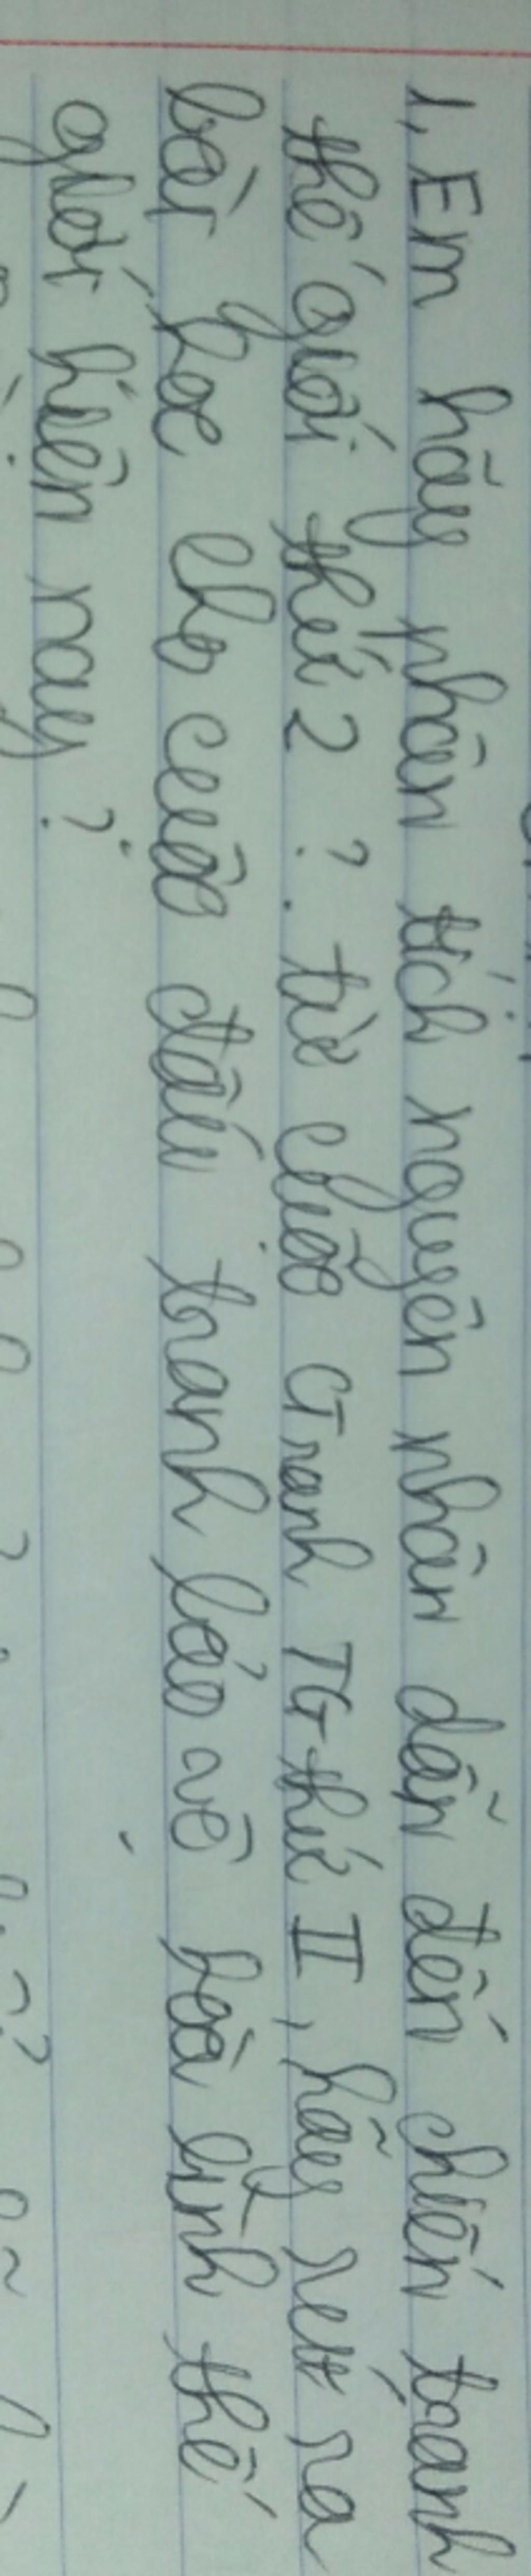 1, Em hãy phân tích nguyên nhân dẫn đến chiến tranh
thế giới thứ 2 ? . từ cuộc CTranh TG thứ II, hãy rút ra
bài học cho cuộc đấu tranh bảo vệ hoà bình thế
giới hiện nay ?